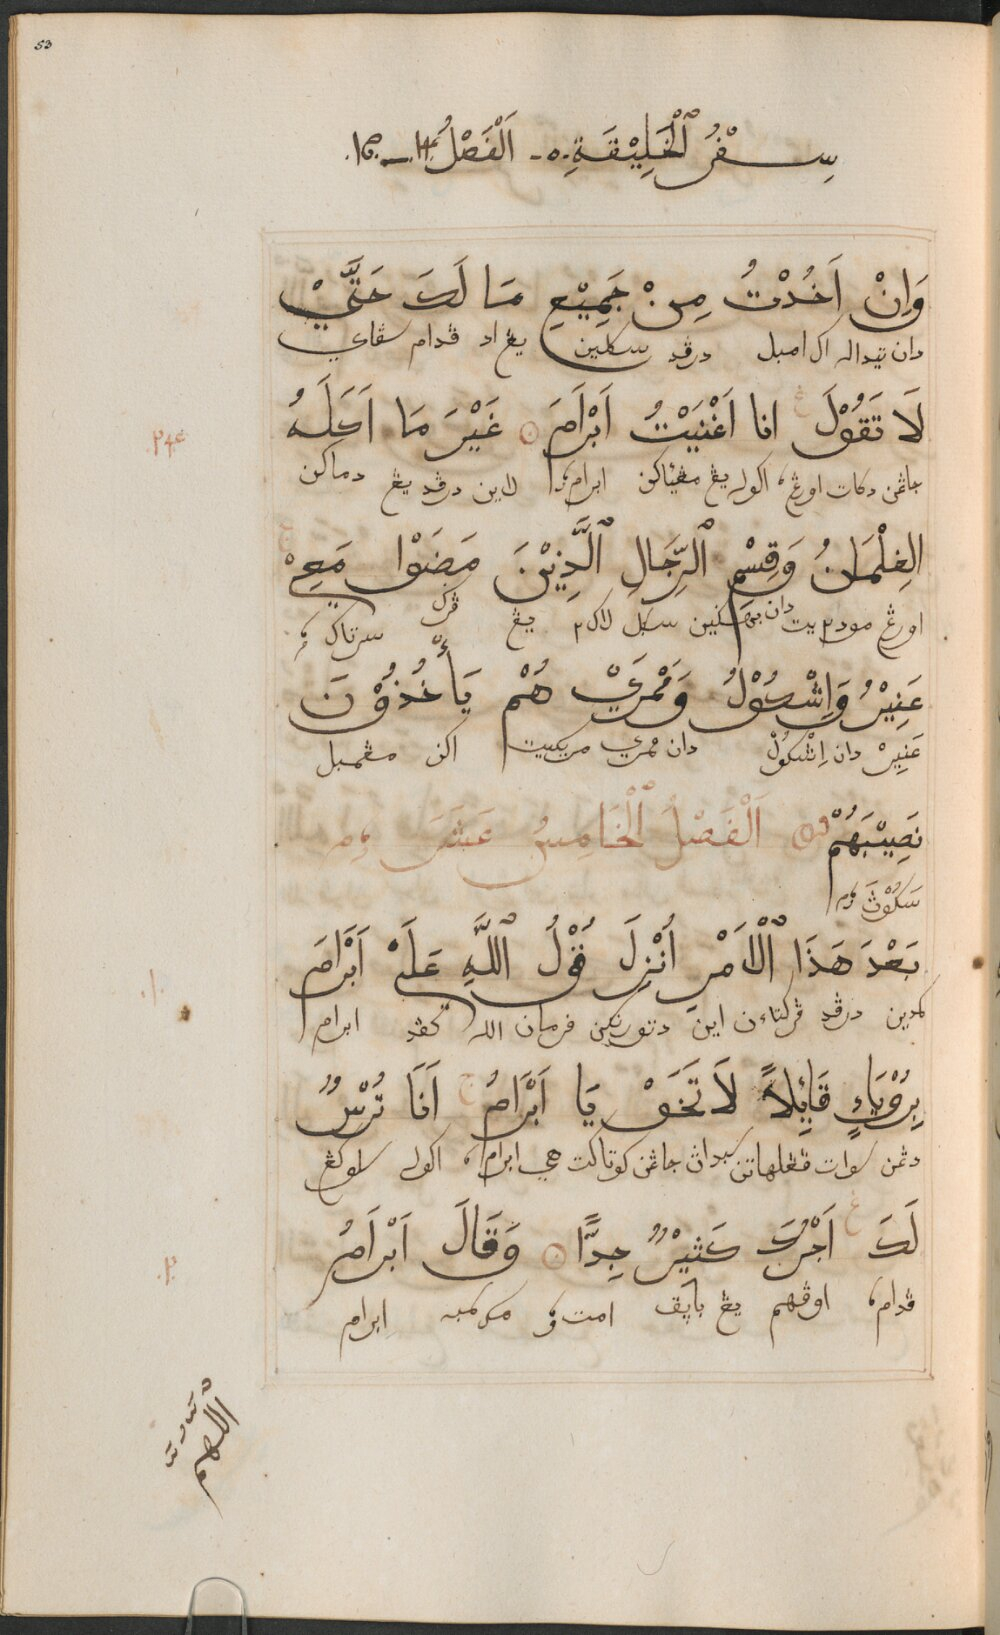 53
سِفْرُ ٱلْخَلِيْقَةِ ۔ اَلْفَصْلُ ١٤ ـ ١٥
وَاِنْ اَخُذْتُ مِنْ جَمِيْعِ مَا لَكَ حَتَّيْ
دان تيداله اكو امبل درڤد سكلين يڠ اد ڤدام سڤاي
لَا تَقُوْلَ انا اَغْنَيْتُ اَبْرَامَ غَيْرَ مَا اَكَلَهُ
جاڠن دكات اورڠ اكوله يڠ مڠياكن ابرام لاين درڤد يڠ دماكن
٢٤
الغِلْمَانُ وَقِسْمِ ٱلرِّجَالِ ٱلَّذِيْنَ مَضَوْا مَعِيْ
اورڠ مود٢ ايت دان بهڬين سڬل لاك٢ يڠ ڤرڬي سرتاك
عَنِيْرُ وَاِشْكُوْلُ وَمْمرَيْ هُمْ يَأْخُذُوْنَ
عَنِيْرْ دان اِشْكُوْلْ دان ممري مريكيت اكن مڠمبل
نَصِيْبَهُمْ اَلْفَصْلُ ٱلْخَامِسُ عَشَرَ
سَكُوْتُڽَ
بَعْدَ هَذَا ٱلْاَمْرِ اُنْزِلَ قَوْلُ ٱللَّهِ عَلَيْ اَبْرَامَ
كمدين درڤد ڤركتاءن اين دتورنكن فرمان الله كڤد ابرام
١
بِرُوْيَاءٍ قَائِلاً لَا تَخَفْ يَا اَبْرَامُ اَنَا تُرْسٌ
دڠن سوات ڤڠلهاتن سبداڽ جاڠن كوتاكت هي ابرام اكوله سلوكڠ
لَكَ اَجْرُكَ كَثِيْرٌ جِدًّا وَقَالَ اَبْرَامُ
ڤدام اوڤهم يڠ باڽق امت مك كمبه ابرام
٢
اللهم